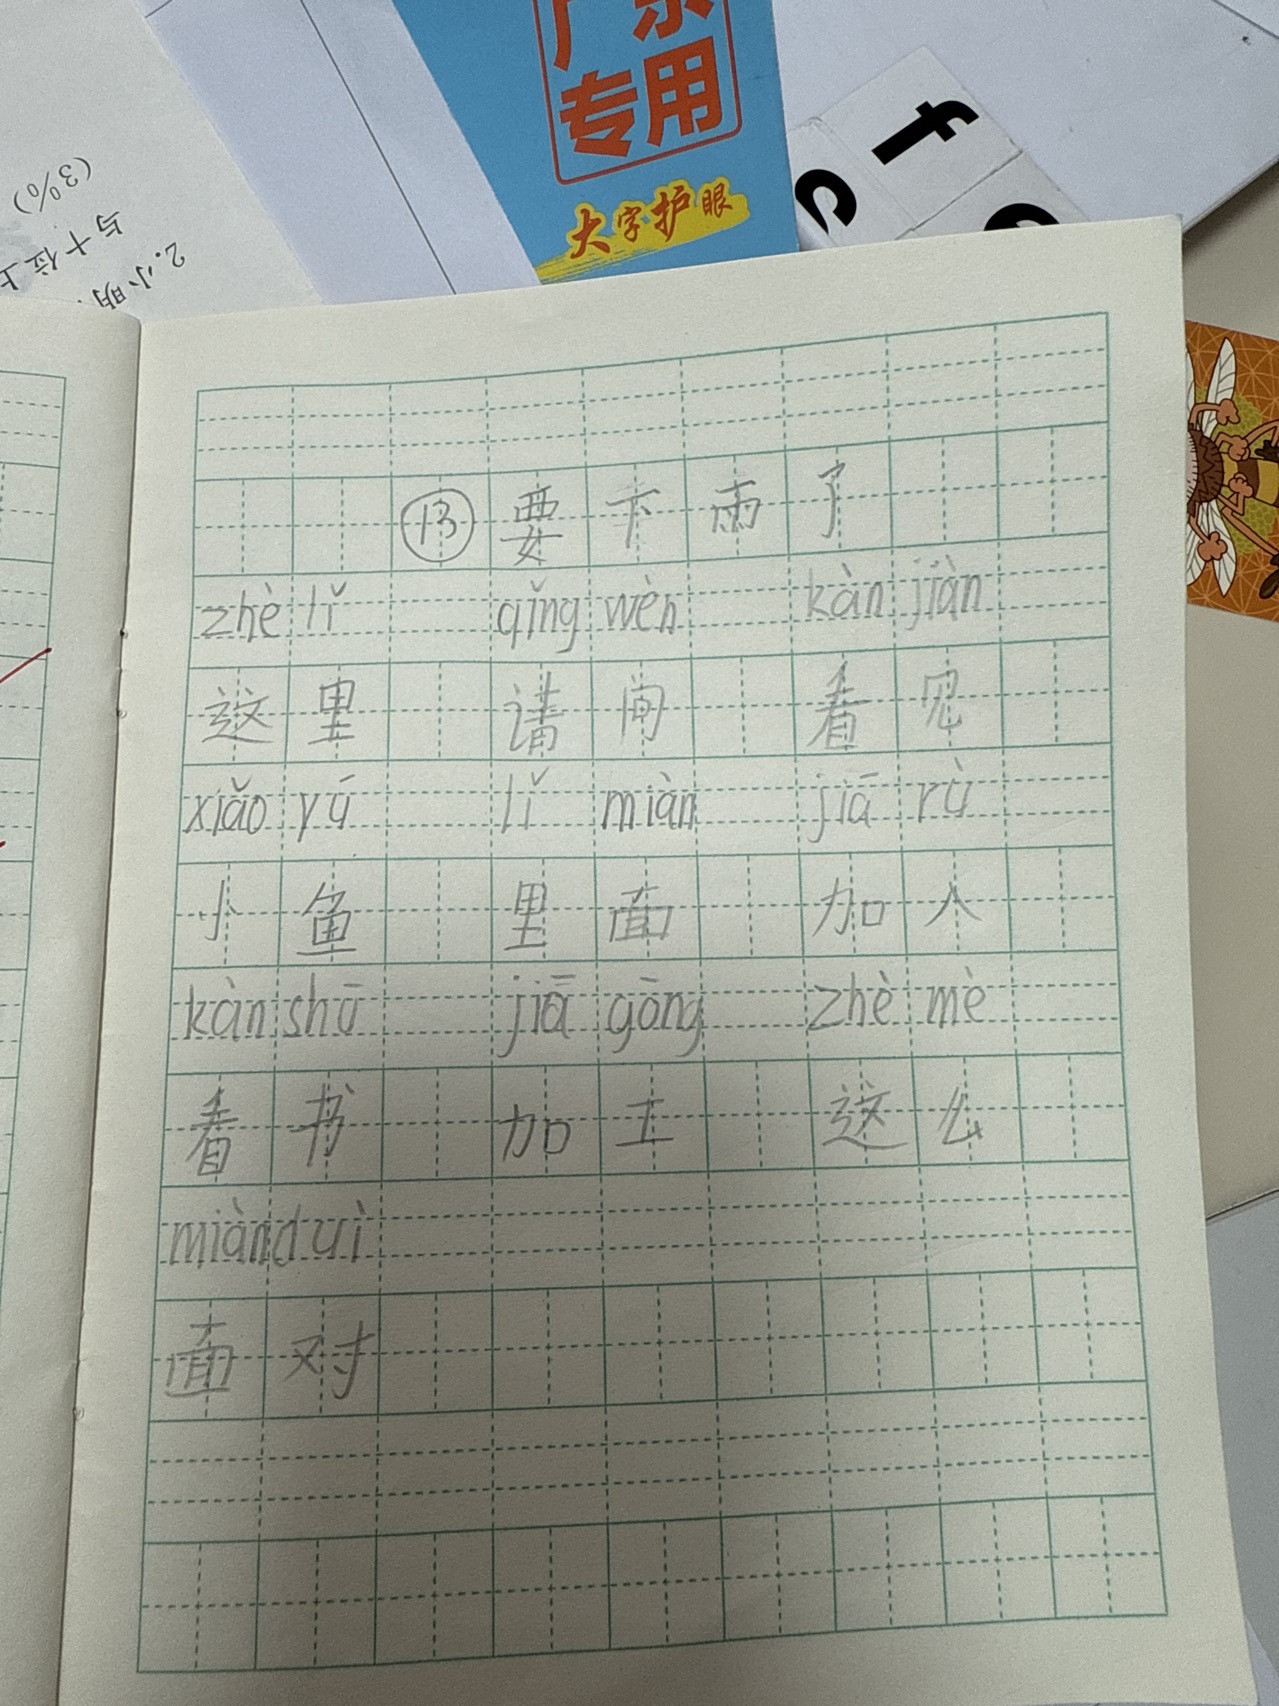 广东
专用
大字护眼
f
c
(3%)
与十位上
2.小明
13 要下雨了
zhè lǐ qǐng wèn kàn jiàn
这里 请问 看见
xiǎo yú lǐ miàn jiā rù
小鱼 里面 加入
kàn shū jiā gōng zhè mè
看书 加工 这么
miàn duì
面对